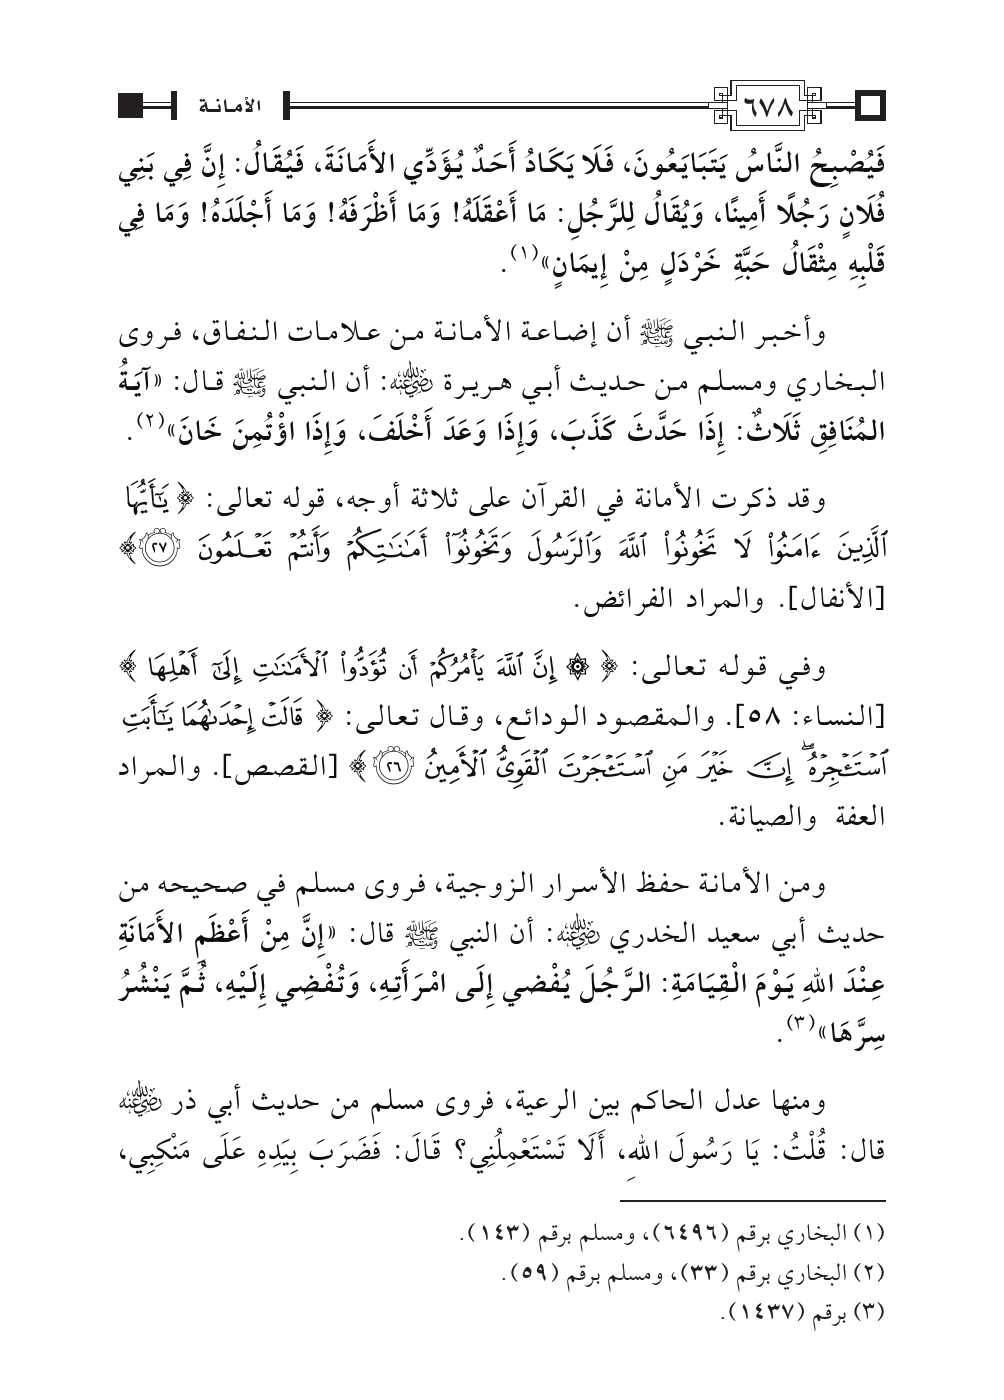 ٦٧٨
الأمانة
فَيُصْبِحُ النَّاسُ يَتَبَايَعُونَ، فَلَا يَكَادُ أَحَدٌ يُؤَدِّي الأَمَانَةَ، فَيُقَالُ: إِنَّ فِي بَنِي
فُلَانٍ رَجُلًا أَمِينًا، وَيُقَالُ لِلرَّجُلِ: مَا أَعْقَلَهُ! وَمَا أَظْرَفَهُ! وَمَا أَجْلَدَهُ! وَمَا فِي
قَلْبِهِ مِثْقَالُ حَبَّةِ خَرْدَلٍ مِنْ إِيمَانٍ»(١).
وأخبر النبي ﷺ أن إضاعة الأمانة من علامات النفاق، فروى
البخاري ومسلم من حديث أبي هريرة رضي الله عنه: أن النبي ﷺ قال: «آيَةُ
المُنَافِقِ ثَلَاثٌ: إِذَا حَدَّثَ كَذَبَ، وَإِذَا وَعَدَ أَخْلَفَ، وَإِذَا اؤْتُمِنَ خَانَ»(٢).
وقد ذكرت الأمانة في القرآن على ثلاثة أوجه، قوله تعالى: ﴿ يَٰٓأَيُّهَا
ٱلَّذِينَ ءَامَنُوا۟ لَا تَخُونُوا۟ ٱللَّهَ وَٱلرَّسُولَ وَتَخُونُوٓا۟ أَمَٰنَٰتِكُمْ وَأَنتُمْ تَعْلَمُونَ ٢٧ ﴾
[الأنفال]. والمراد الفرائض.
وفي قوله تعالى: ﴿ ۞ إِنَّ ٱللَّهَ يَأْمُرُكُمْ أَن تُؤَدُّوا۟ ٱلْأَمَٰنَٰتِ إِلَىٰٓ أَهْلِهَا ﴾
[النساء: ٥٨]. والمقصود الودائع، وقال تعالى: ﴿ قَالَتْ إِحْدَىٰهُمَا يَٰٓأَبَتِ
ٱسْتَـْٔجِرْهُ ۖ إِنَّ خَيْرَ مَنِ ٱسْتَـْٔجَرْتَ ٱلْقَوِىُّ ٱلْأَمِينُ ٢٦ ﴾ [القصص]. والمراد
العفة والصيانة.
ومن الأمانة حفظ الأسرار الزوجية، فروى مسلم في صحيحه من
حديث أبي سعيد الخدري رضي الله عنه: أن النبي ﷺ قال: «إِنَّ مِنْ أَعْظَمِ الأَمَانَةِ
عِنْدَ اللهِ يَوْمَ الْقِيَامَةِ: الرَّجُلَ يُفْضي إِلَى امْرَأَتِهِ، وَتُفْضِي إِلَيْهِ، ثُمَّ يَنْشُرُ
سِرَّهَا»(٣).
ومنها عدل الحاكم بين الرعية، فروى مسلم من حديث أبي ذر رضي الله عنه
قال: قُلْتُ: يَا رَسُولَ اللهِ، أَلَا تَسْتَعْمِلُنِي؟ قَالَ: فَضَرَبَ بِيَدِهِ عَلَى مَنْكِبِي،
(١) البخاري برقم (٦٤٩٦)، ومسلم برقم (١٤٣).
(٢) البخاري برقم (٣٣)، ومسلم برقم (٥٩).
(٣) برقم (١٤٣٧).